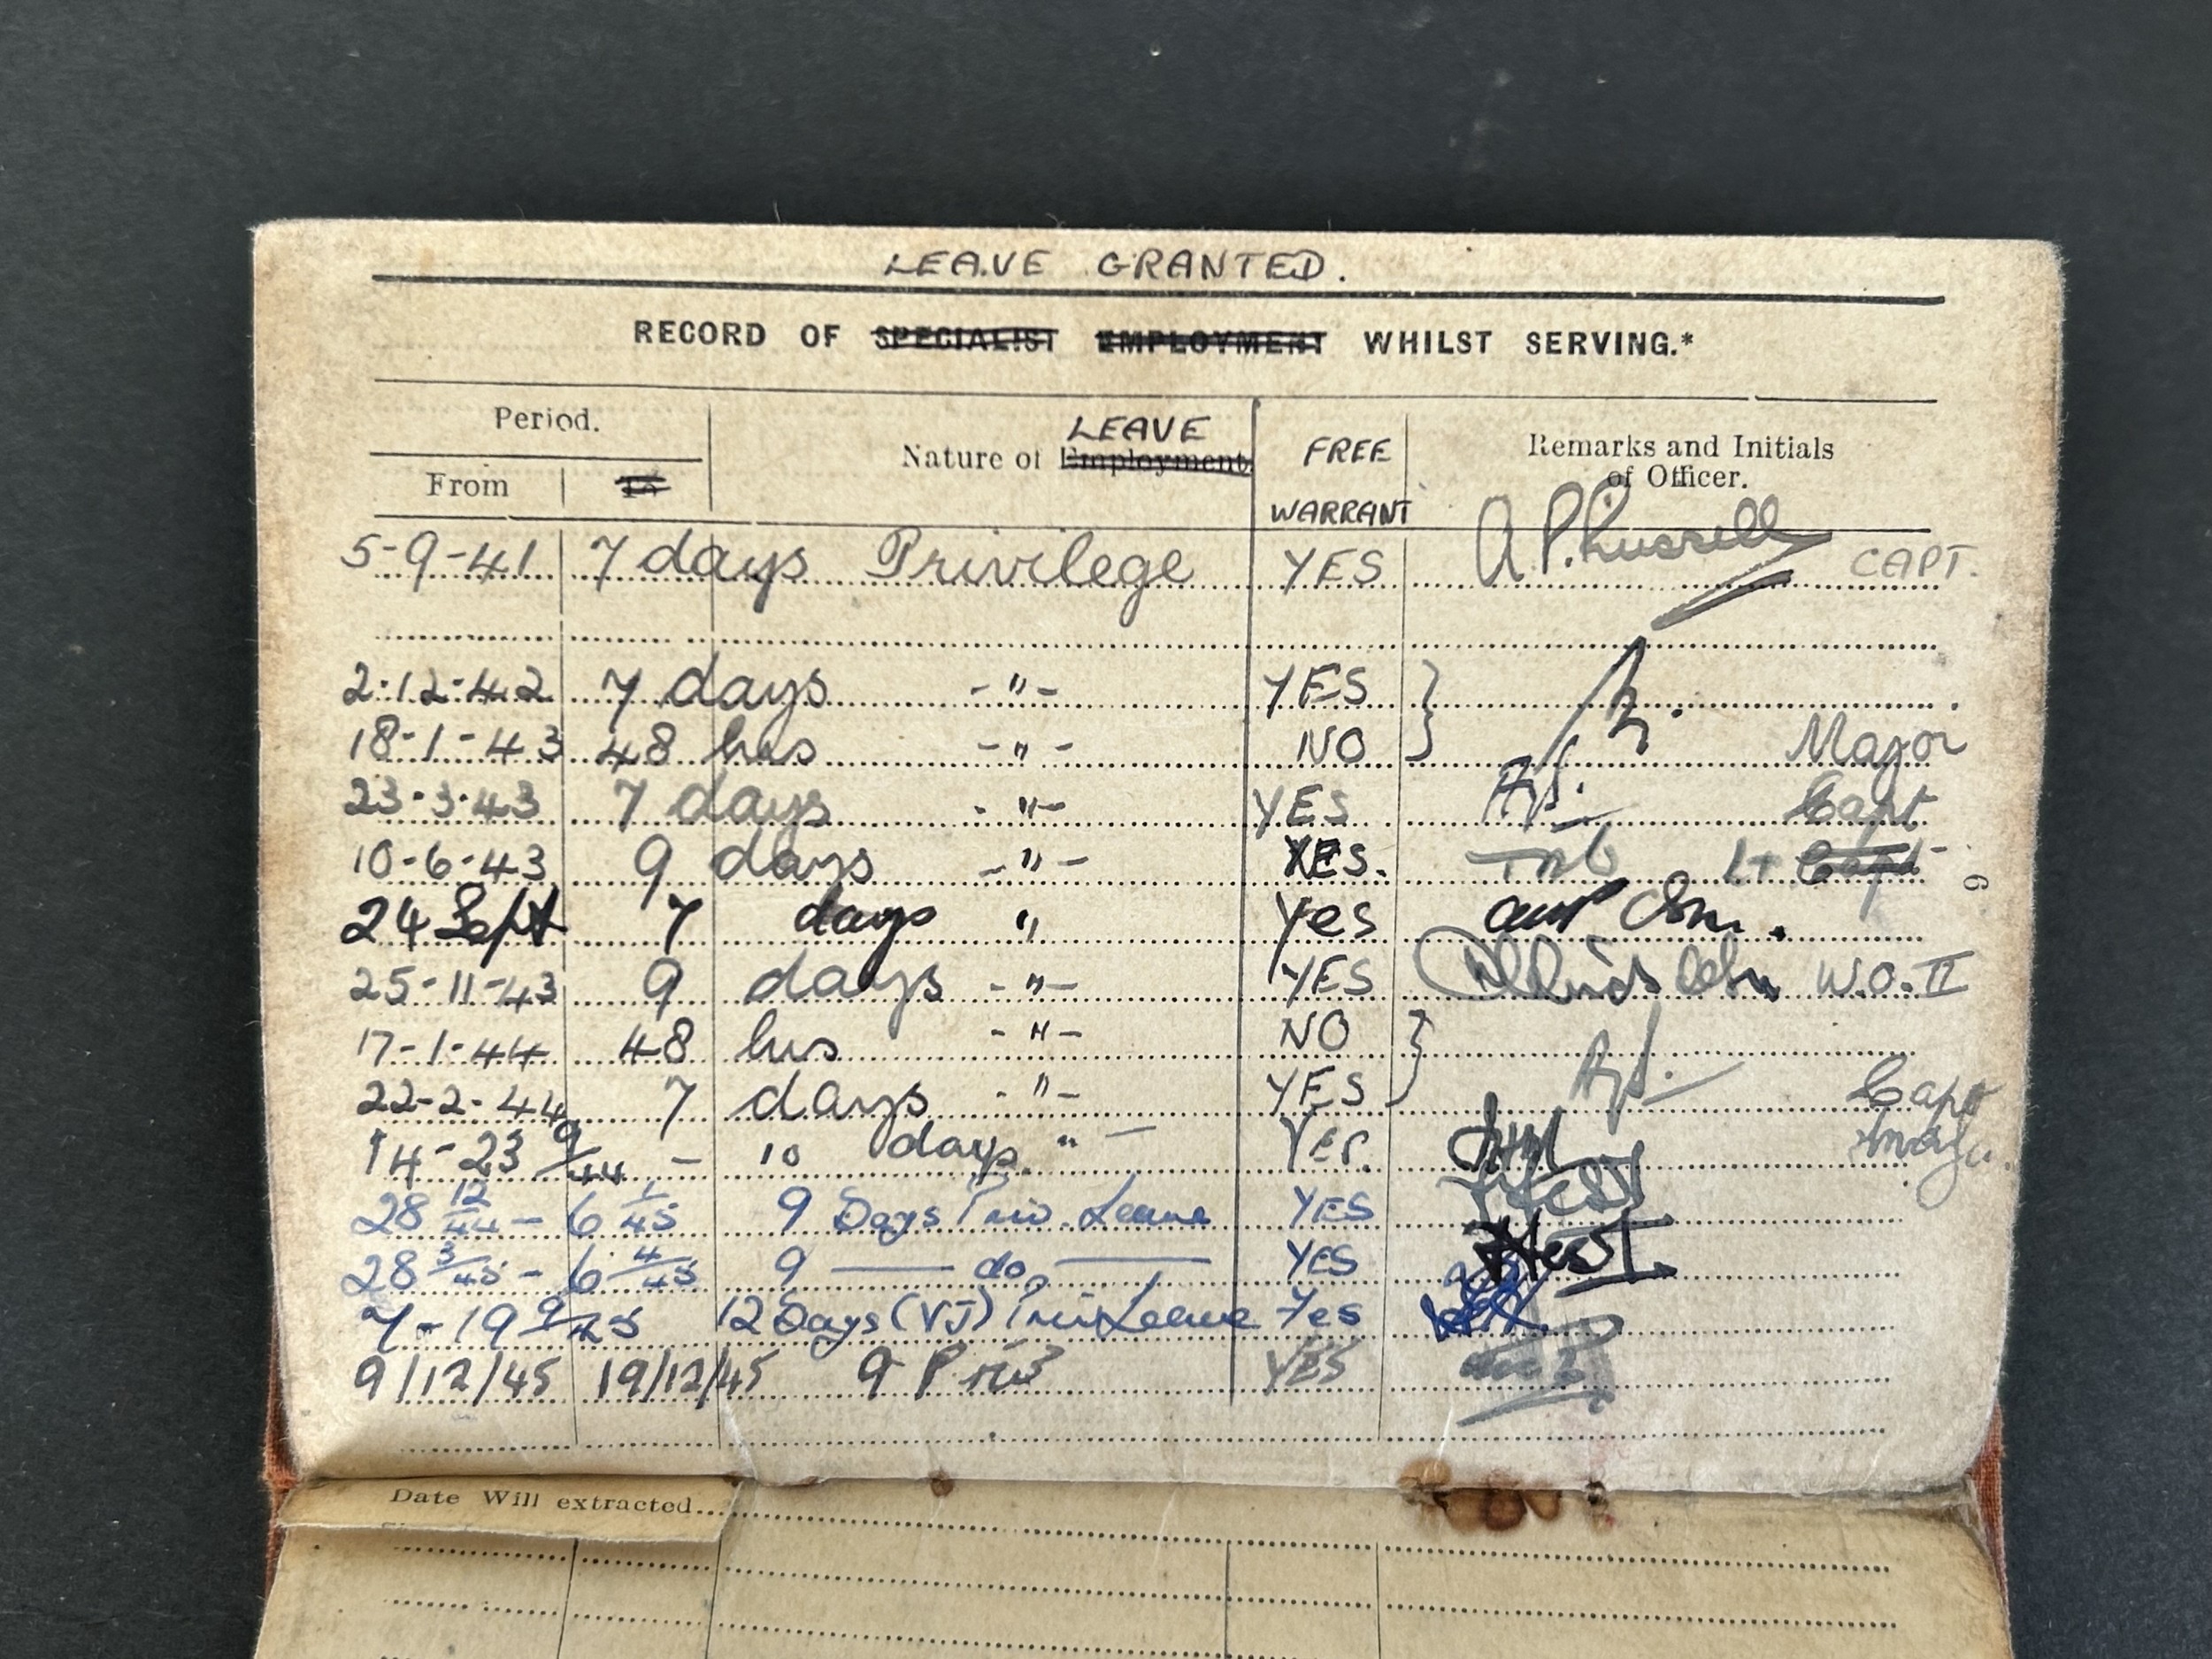 LEAVE GRANTED.
RECORD OF SPECIALIST EMPLOYMENT WHILST SERVING.*
Period. Nature of Employment. LEAVE FREE WARRANT Remarks and Initials of Officer.
From To
5-9-41 7 days Privilege YES A.P. Russell CAPT.
2-12-42 7 days -"- YES
18-1-43 48 hrs -"- NO Major
23-3-43 7 days -"- YES Capt
10-6-43 9 days -"- YES. Lt Capt
24 Sept 7 days " Yes
25-11-43 9 days -"- YES W.O.II
17-1-44 48 hrs -"- NO
22-2-44 7 days -"- YES Capt
14-23 9/44 - 10 days " - Yes. Major
28 12/44 - 6 1/45 9 Days Priv Leave YES
28 3/45 - 6 4/45 9 — do — YES
7-19 9/45 12 Days (VJ) Priv Leave Yes
9/12/45 19/12/45 9 Priv YES
6
Date Will extracted